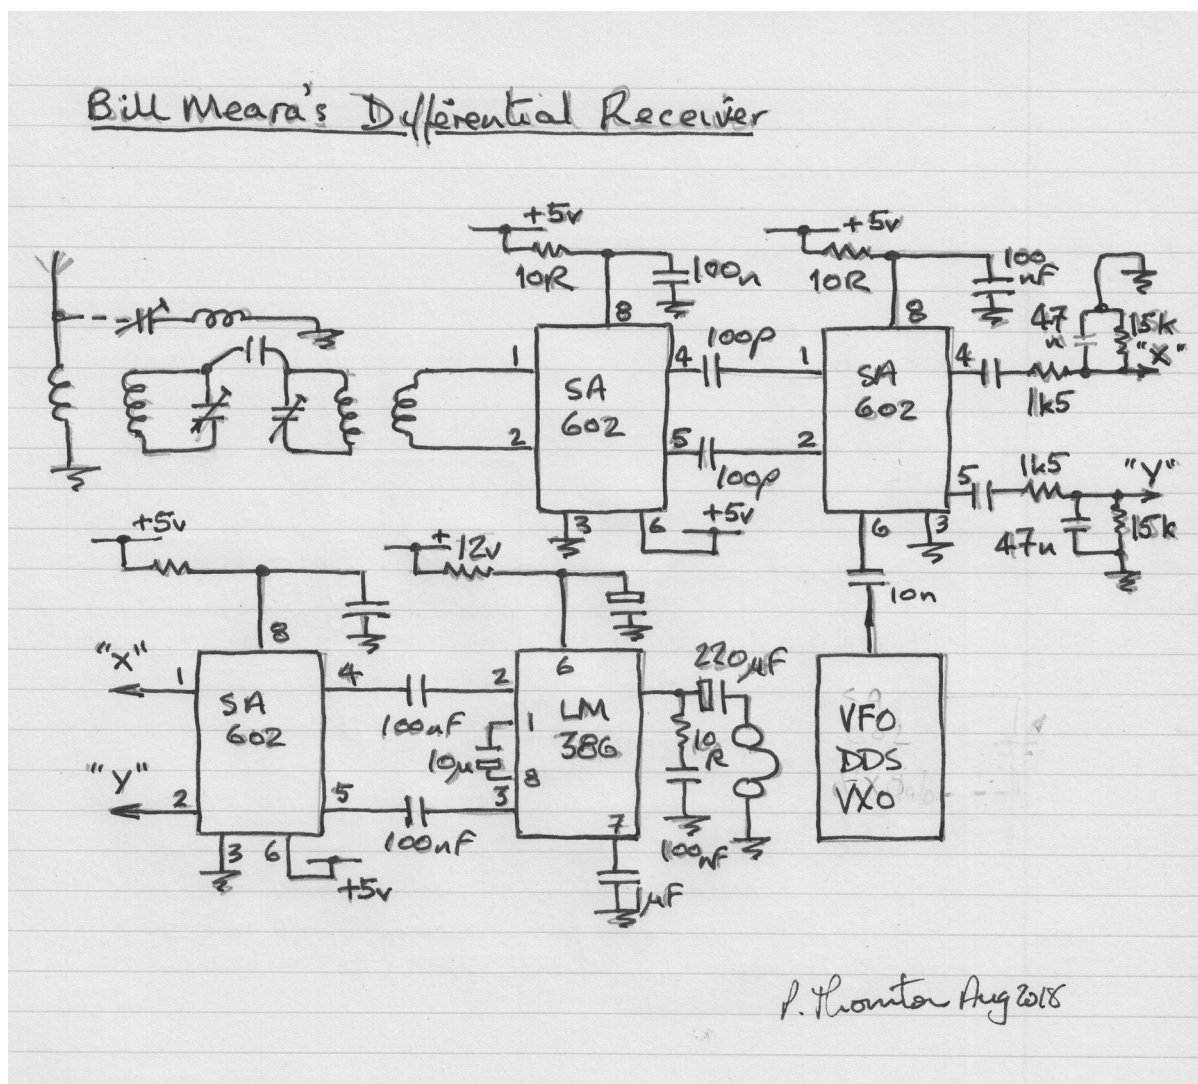 Bill Meara's Differential Receiver
+5v
10R
100n
8
1
2
SA
602
4
5
3
6
+5v
100p
100p
+5v
10R
100
nF
8
1
2
SA
602
4
5
6
3
47
n
15k
"X"
1k5
1k5
"Y"
47n
15k
10n
VFO
DDS
VXO
+5v
8
"X"
1
"Y"
2
SA
602
4
5
3
6
+5v
100nF
100nF
+12v
6
2
1
10μ
8
3
LM
386
7
1μF
220μF
10
R
100nF
P. Thornton Aug 2018